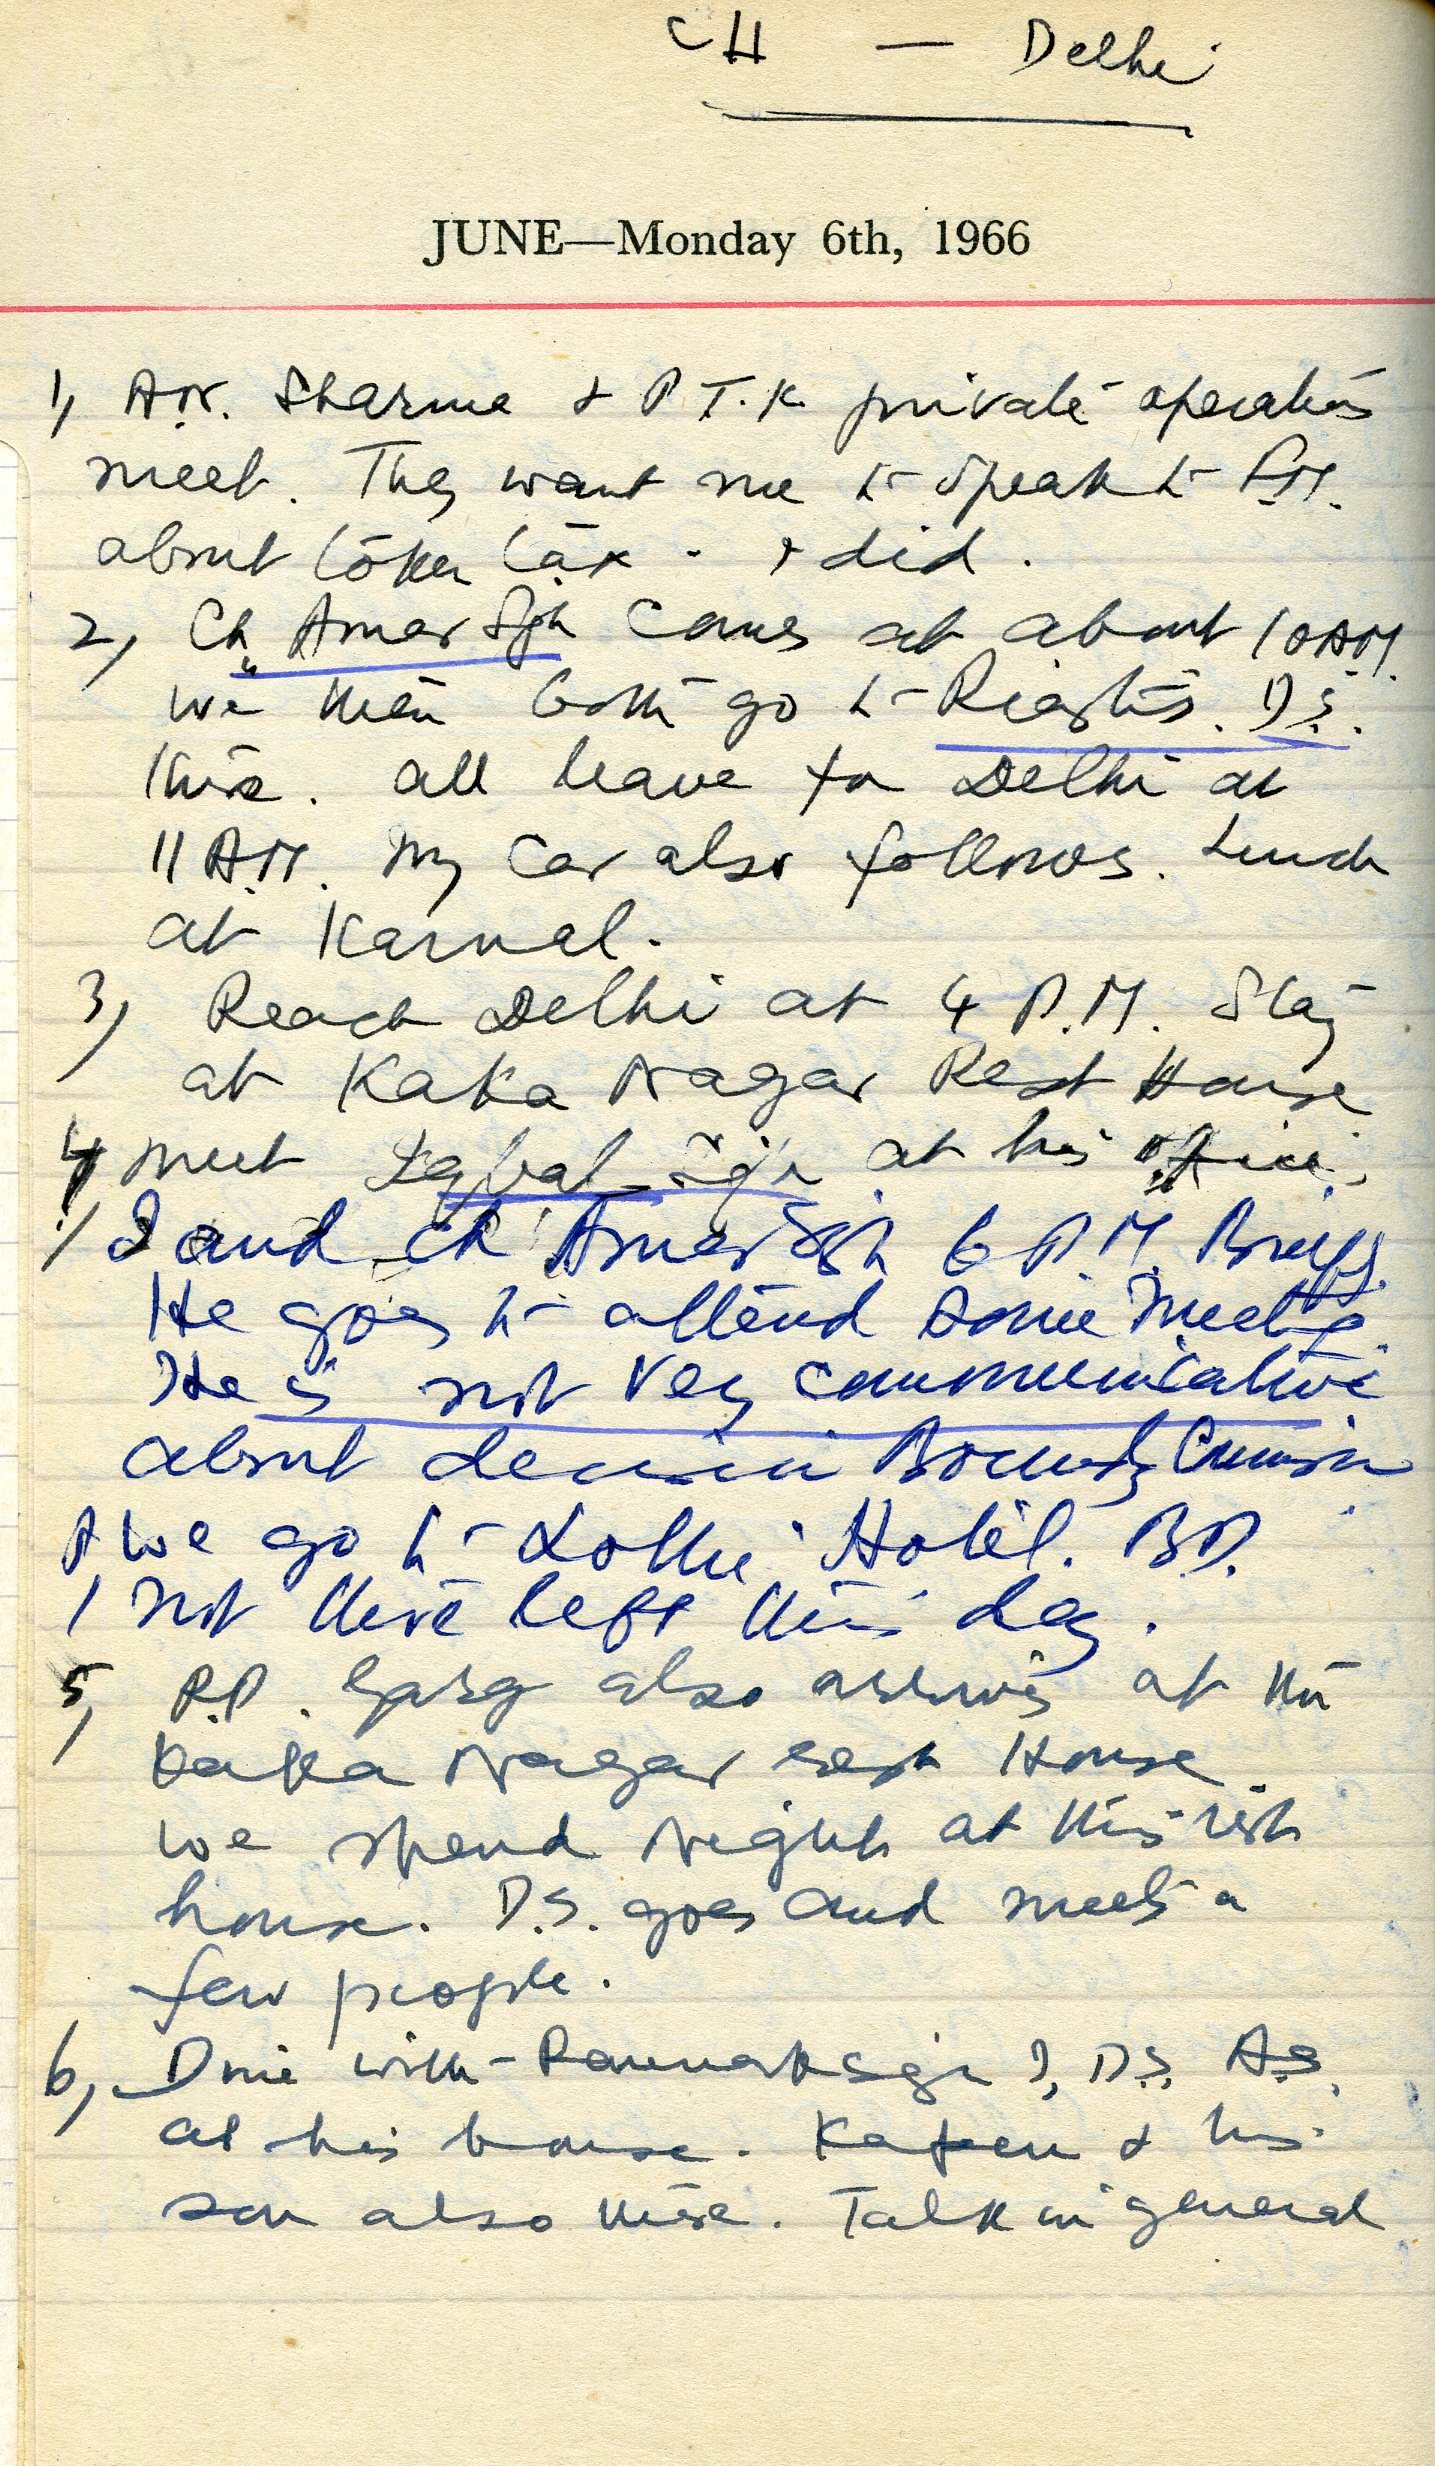 CH — Delhi
JUNE—Monday 6th, 1966
1, A.N. Sharma & P T.K. private operators
meet. They want me to speak to F.M.
about token tax. I did.
2, Ch. Amar Sgh comes at about 10 A.M.
we then both go to D.S.
there. all leave for Delhi at
11 A.M. My car also follows. Lunch
at Karnal.
3, Reach Delhi at 4 P.M. Stay
at Kaka Nagar Rest House
4, meet Iqbal Sgh at his office
I and Ch Amar Sgh 6 P.M.
He goes to attend some meeting
He is not very communicative
about decision Boundry Commission
we go to Lodhi Hotel. B.D.
not there left this day.
5, P.P. Garg also arrives at the
Kaka Nagar rest House.
we spend night at this rest
house. D.S. goes and meets a
few people.
6, Dine with I, D.S, A.S.
at his house. & his
son also there. Talk in general